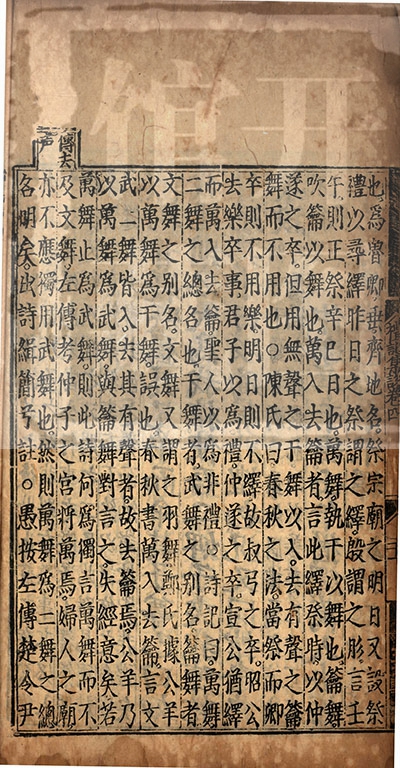 也。爲魯卿垂齊地名。祭宗廟之明日又設祭
禮以尋繹昨日之祭謂之繹。殷謂之肜。言壬
午則正祭辛巳日也。萬舞執干以舞也。籥舞
吹籥以舞也。萬入去籥者言此繹祭時以仲
遂之卒。但用無聲之干舞以入。去有聲之籥
舞而不用也○陳氏曰春秋之法。當祭而卿
卒則不用樂。明日則不繹。故叔弓之卒昭公
去樂卒事。君子以爲禮。仲遂之卒。宣公猶繹
而萬入去籥。聖人以爲非禮○詩記曰。萬舞
二舞之總名也。干舞者武舞之別名。籥舞者
文舞之別名。文舞又謂之羽舞。鄭氏據公羊
以萬舞爲干舞。誤也。春秋書萬入去籥言文
武二舞皆入。去其有聲者。故去籥焉。公羊乃
以萬舞爲武舞。與籥舞對言之。失經意矣。若
萬舞止爲武舞。則此詩何爲獨言萬舞而不
及文舞。左傳考仲子之宮將萬焉。婦人之廟
亦不應獨用武舞也。然則萬舞爲二舞之總
名明矣。出詩緝簡兮註。○愚按左傳楚令尹
傳去
声
开
館
卷四